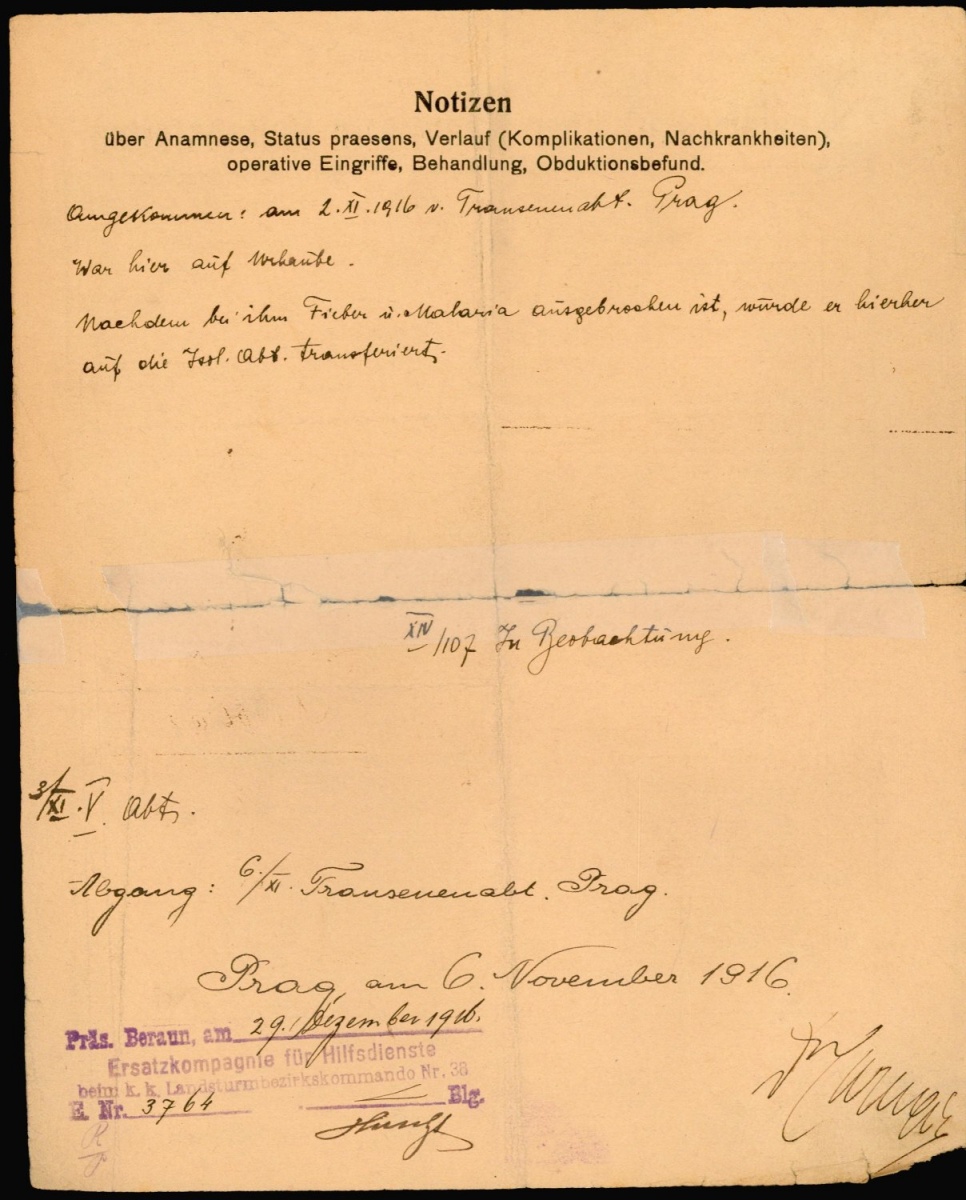 Notizen
über Anamnese, Status praesens, Verlauf (Komplikationen, Nachkrankheiten),
operative Eingriffe, Behandlung, Obduktionsbefund.
Angekommen: am 2. XI. 1916 v. Transenenabt. Prag.
War hier auf Urlaube.
Nachdem bei ihm Fieber u. Malaria ausgebrochen ist, wurde er hierher
auf die Isol. Abt. transferiert.
XIV/107 In Beobachtung.
3/XI. V. Abt.
Abgang: 6./XI. Transenenabt. Prag.
Prag am 6. November 1916.
Präs. Beraun, am 29. Dezember 1916.
Ersatzkompagnie für Hilfsdienste
beim k. k. Landsturmbezirkskommando Nr. 38
E. Nr. 3764 Blg.